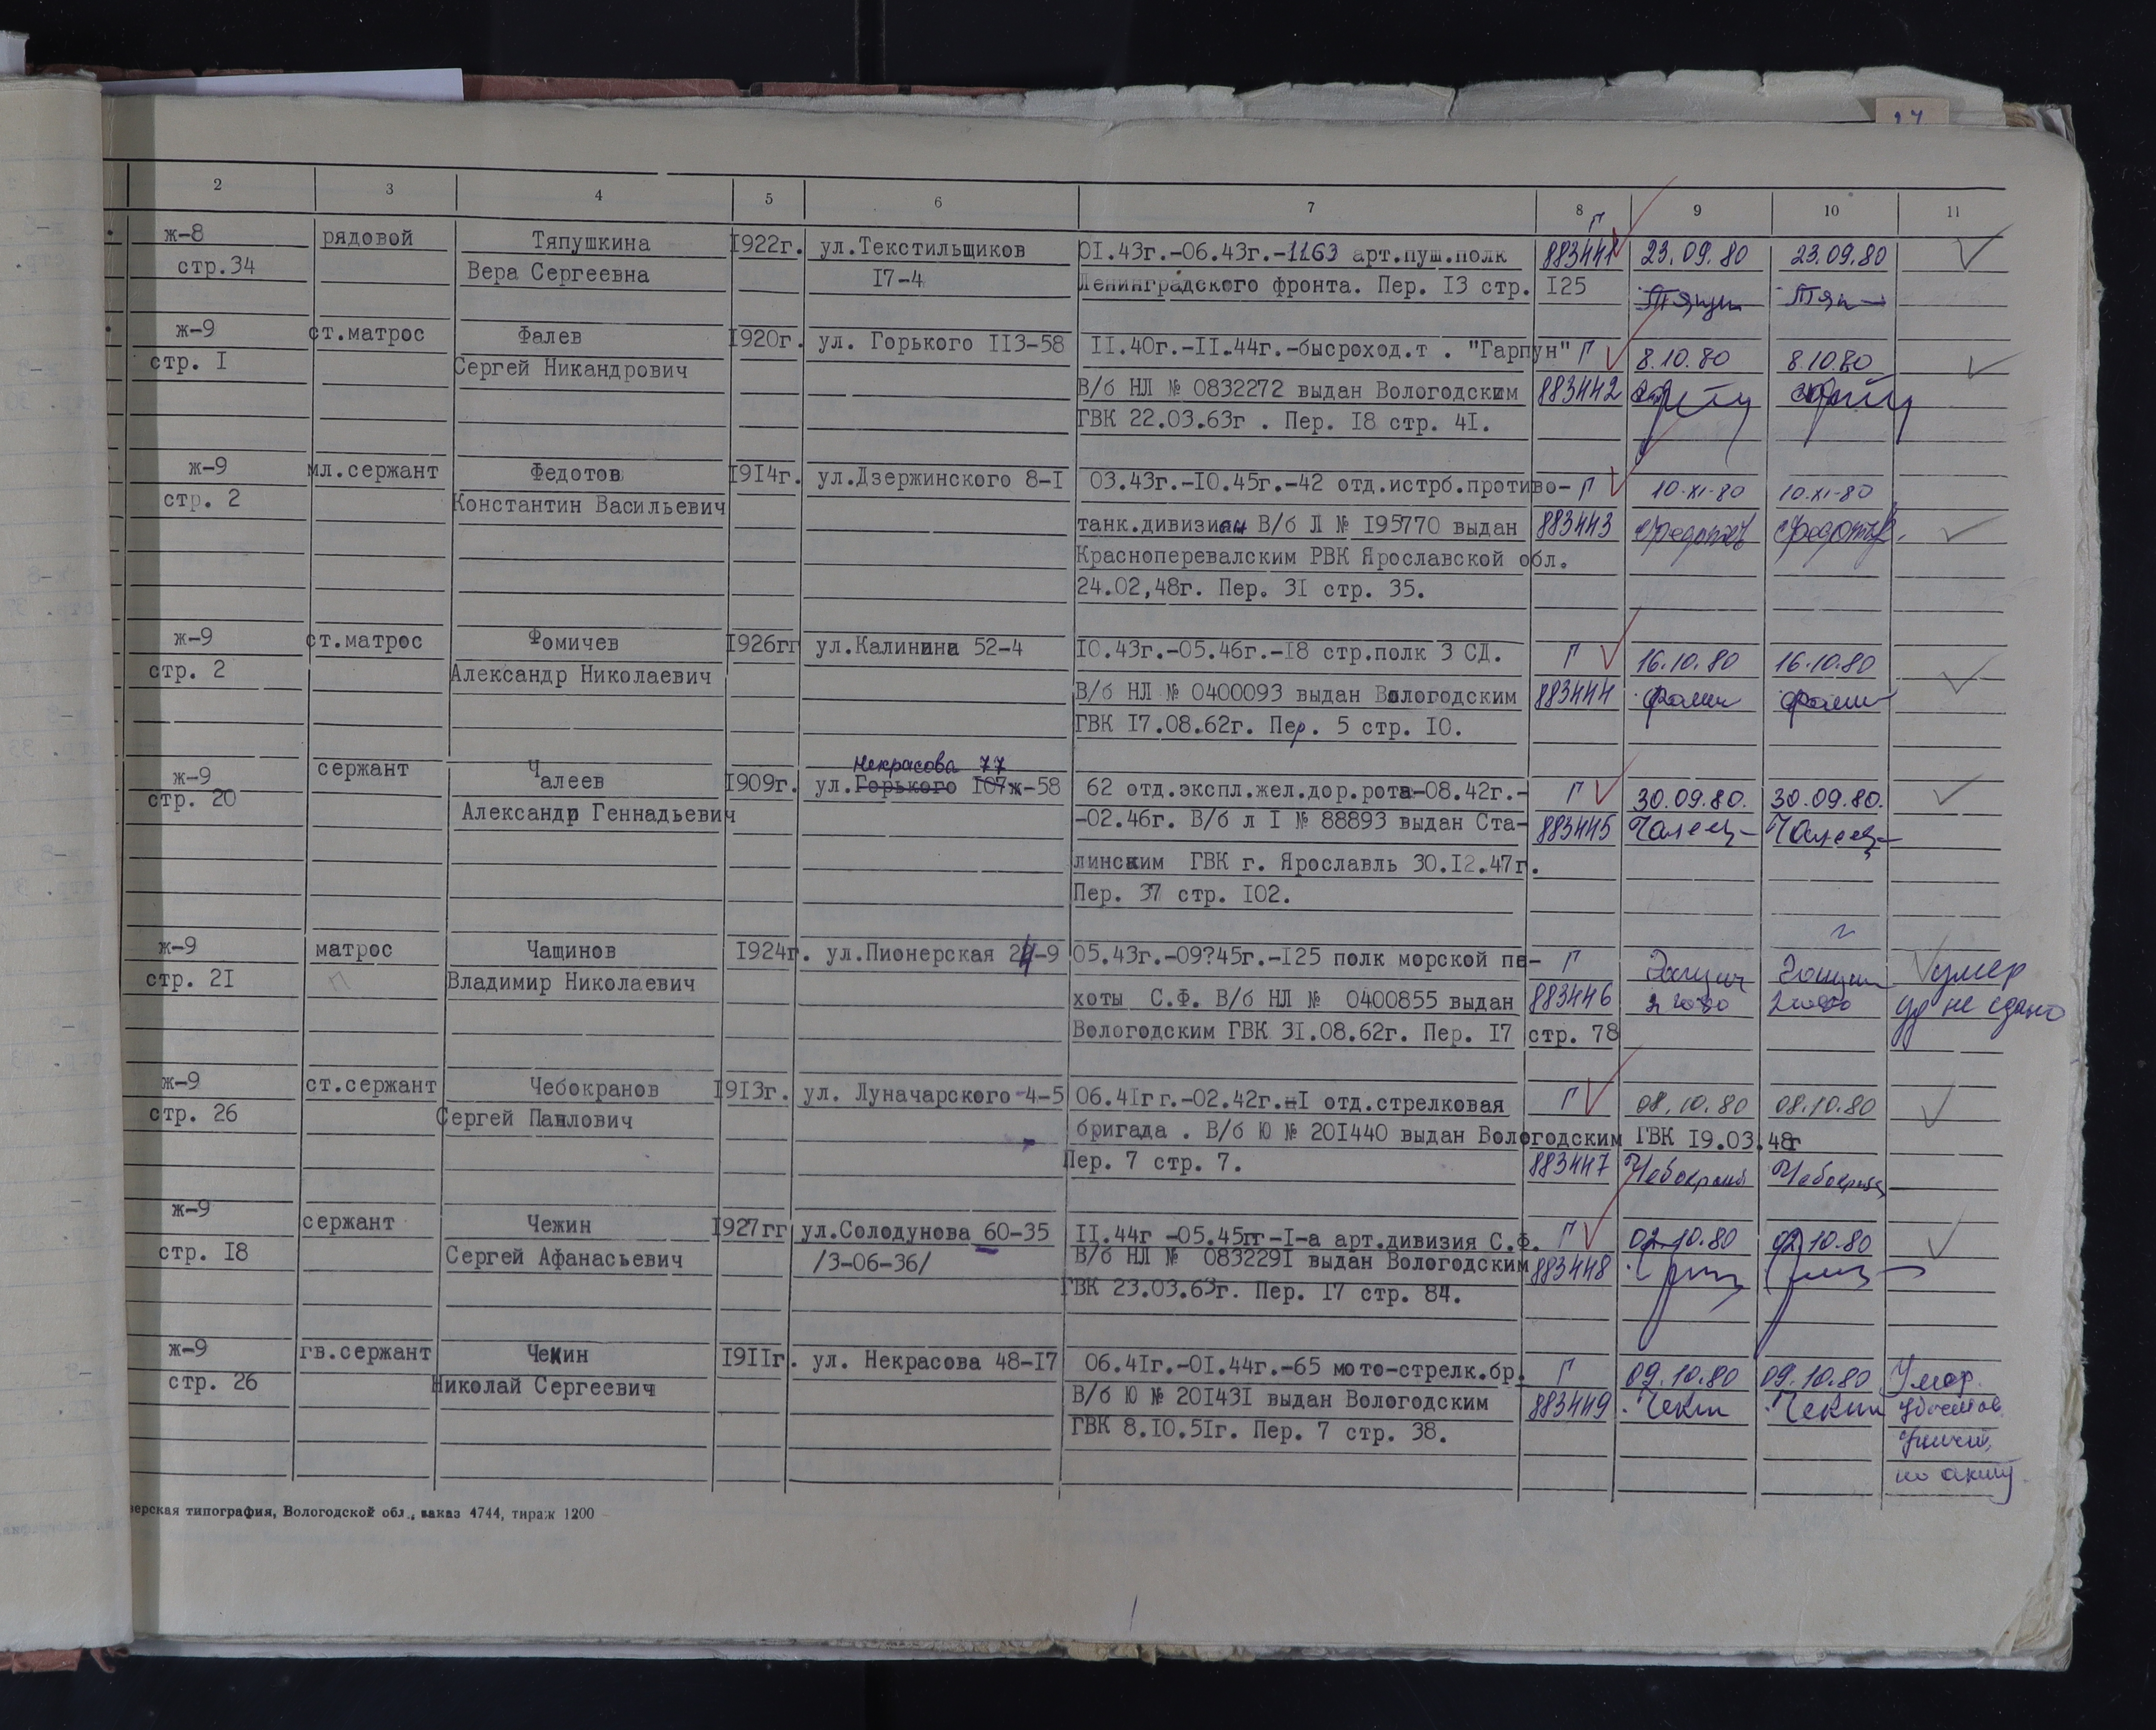 2 3 4 5 6 7 8 9 10 11
ж-8 рядовой Тяпушкина 1922г. ул.Текстильщиков 01.43г.-06.43г.-1163 арт.пуш.полк Г 883441 23.09.80 23.09.80
стр.34 Вера Сергеевна 17-4 Ленинградского фронта. Пер. 13 стр. 125
ж-9 ст.матрос Фалев 1920г. ул. Горького 113-58 11.40г.-11.44г.-бысроход.т . "Гарпун" Г 8.10.80 8.10.80
стр. 1 Сергей Никандрович В/б НЛ № 0832272 выдан Вологодским 883442
ГВК 22.03.63г . Пер. 18 стр. 41.
ж-9 мл.сержант Федотов 1914г. ул.Дзержинского 8-1 03.43г.-10.45г.-42 отд.истрб.противо- Г 10-XI-80 10-XI-80
стр. 2 Константин Васильевич танк.дивизион В/б Л № 195770 выдан 883443 Федотов Федотов
Красноперевалским РВК Ярославской обл.
24.02,48г. Пер. 31 стр. 35.
ж-9 ст.матрос Фомичев 1926гг ул.Калинина 52-4 10.43г.-05.46г.-18 стр.полк 3 СД. Г 16.10.80 16.10.80
стр. 2 Александр Николаевич В/б НЛ № 0400093 выдан Вологодским 883444
ГВК 17.08.62г. Пер. 5 стр. 10.
Некрасова 77
ж-9 сержант Чалеев 1909г. ул.Горького 107ж-58 62 отд.экспл.жел.дор.рота-08.42г.- Г 30.09.80. 30.09.80.
стр. 20 Александр Геннадьевич -02.46г. В/б л I № 88893 выдан Ста- 883445
линским ГВК г. Ярославль 30.12.47г.
Пер. 37 стр. 102.
ж-9 матрос Чащинов 1924г. ул.Пионерская 24-9 05.43г.-09?45г.-125 полк морской пе- Г умер
стр. 21 П Владимир Николаевич хоты С.Ф. В/б НЛ № 0400855 выдан 883446 2 10 80 2 10 80 уд не сдано
Вологодским ГВК 31.08.62г. Пер. 17 стр. 78
ж-9 ст.сержант Чебокранов 1913г. ул. Луначарского-4-5 06.41гг.-02.42г.-1 отд.стрелковая Г 08.10.80 08.10.80
стр. 26 Сергей Павлович бригада . В/б Ю № 201440 выдан Вологодским ГВК 19.03.48г
Пер. 7 стр. 7. 883447
ж-9 сержант Чежин 1927гг ул.Солодунова 60-35 11.44г -05.45гг-1-а арт.дивизия С.Ф. Г 02.10.80 02.10.80
стр. 18 Сергей Афанасьевич /3-06-36/ В/б НЛ № 0832291 выдан Вологодским 883448
ГВК 23.03.63г. Пер. 17 стр. 84.
ж-9 гв.сержант Чекин 1911г. ул. Некрасова 48-17 06.41г.-01.44г.-65 мото-стрелк.бр. Г 09.10.80 09.10.80 Умер.
стр. 26 Николай Сергеевич В/б Ю № 201431 выдан Вологодским 883449 Чекин Чекин
ГВК 8.10.51г. Пер. 7 стр. 38.
по акту
ерская типография, Вологодской обл., заказ 4744, тираж 1200